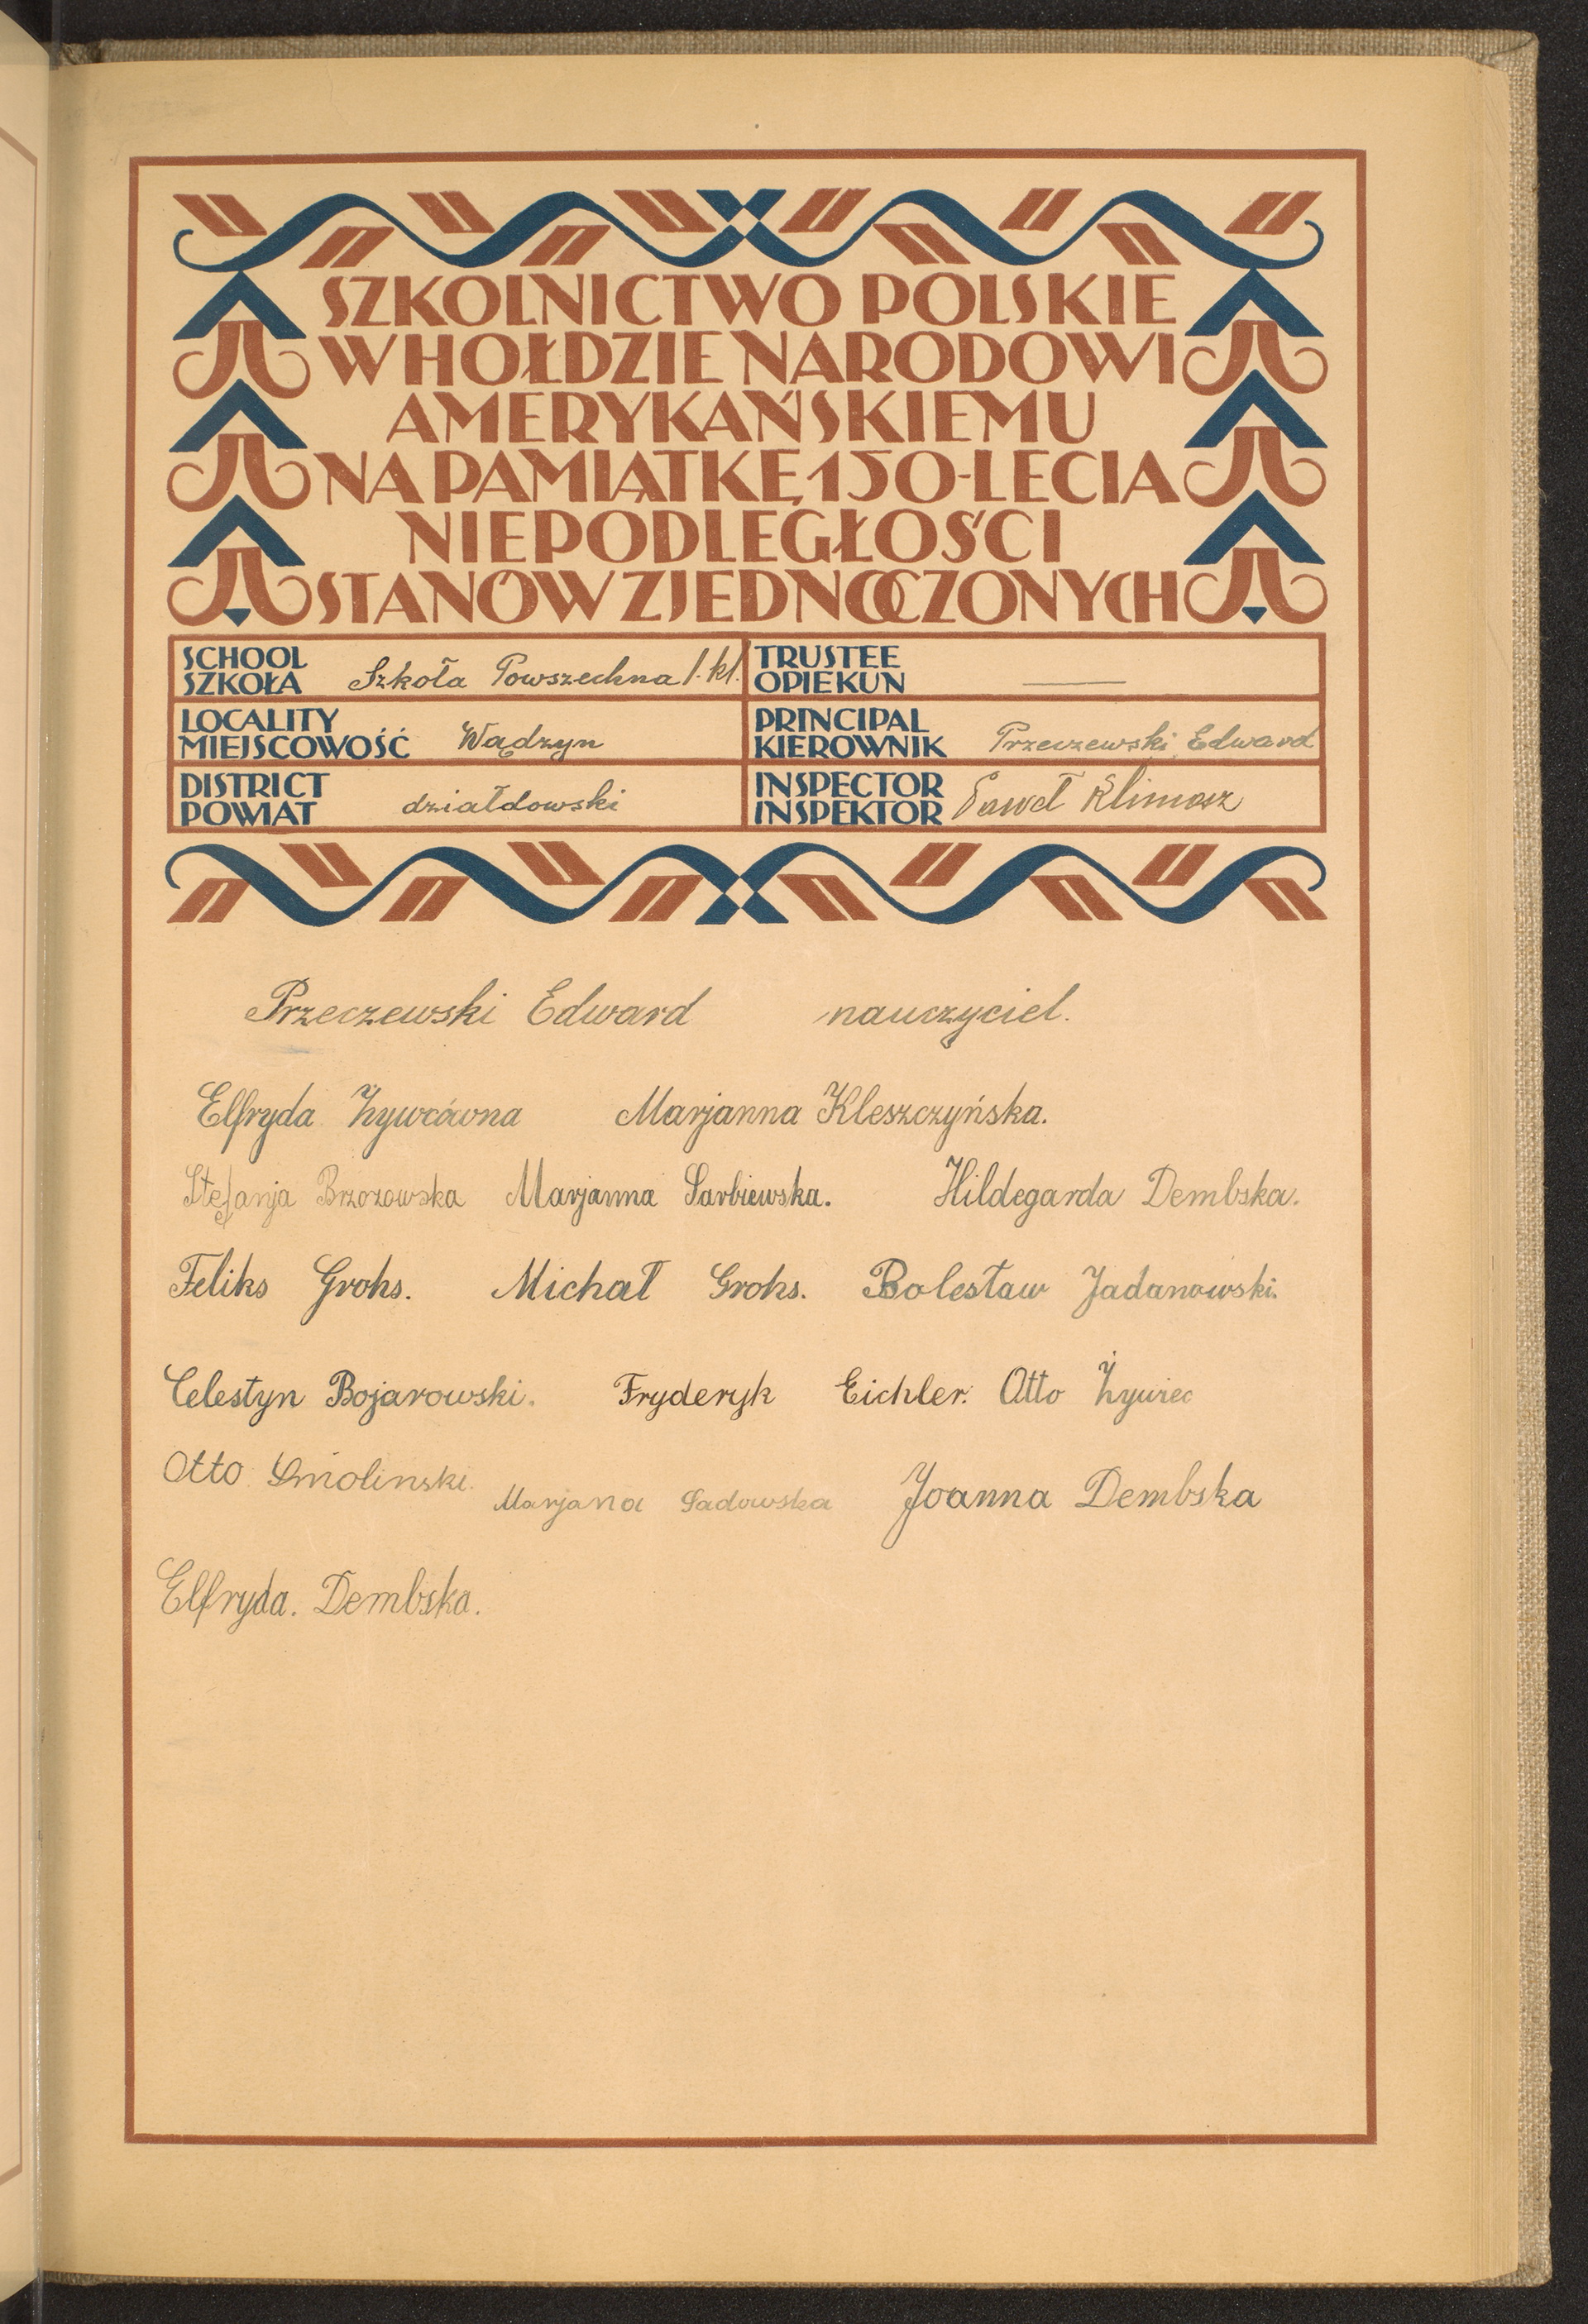 SZKOLNICTWO POLSKIE
W HOŁDZIE NARODOWI
AMERYKAŃSKIEMU
NA PAMIĄTKĘ 150-LECIA
NIEPODLEGŁOŚCI
STANÓW ZJEDNOCZONYCH
SCHOOL
SZKOŁA Szkoła Powszechna 1. kl.
TRUSTEE
OPIEKUN
LOCALITY
MIEJSCOWOŚĆ Wądzyn
PRINCIPAL
KIEROWNIK Przeczewski Edward
DISTRICT
POWIAT działdowski
INSPECTOR
INSPEKTOR Paweł Klimosz
Przeczewski Edward nauczyciel.
Elfryda Żywcówna Marjanna Kleszczyńska.
Stefanja Brzozowska Marjanna Sarbiewska. Hildegarda Dembska.
Feliks Grohs. Michał Grohs. Bolesław Jadanowski.
Celestyn Bojarowski. Fryderyk Eichler. Otto Żywiec
Otto Smolinski. Marjana Sadowska Joanna Dembska
Elfryda. Dembska.